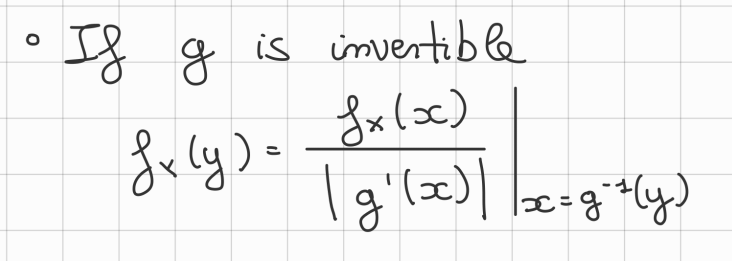 • If g is invertible
f_Y(y) = f_X(x) / |g'(x)| |_{x = g^{-1}(y)}